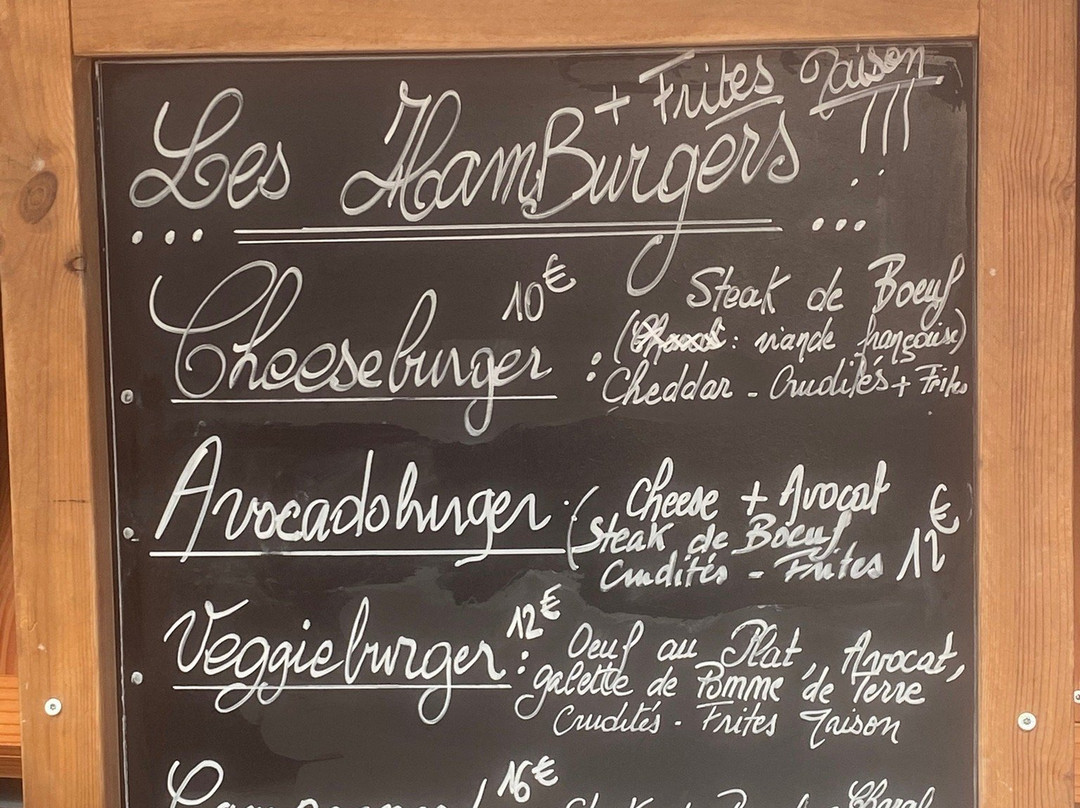 + Frites Maison
Les HamBurgers !!!
... ...
Cheeseburger 10€ : Steak de Boeuf
( : viande française)
Cheddar - Crudités + Frites
Avocadoburger : ( Cheese + Avocat
Steak de Boeuf
Crudités - Frites 12€
Veggieburger 12€ : Oeuf au Plat, Avocat,
galette de Pomme de Terre
Crudités - Frites Maison
16€